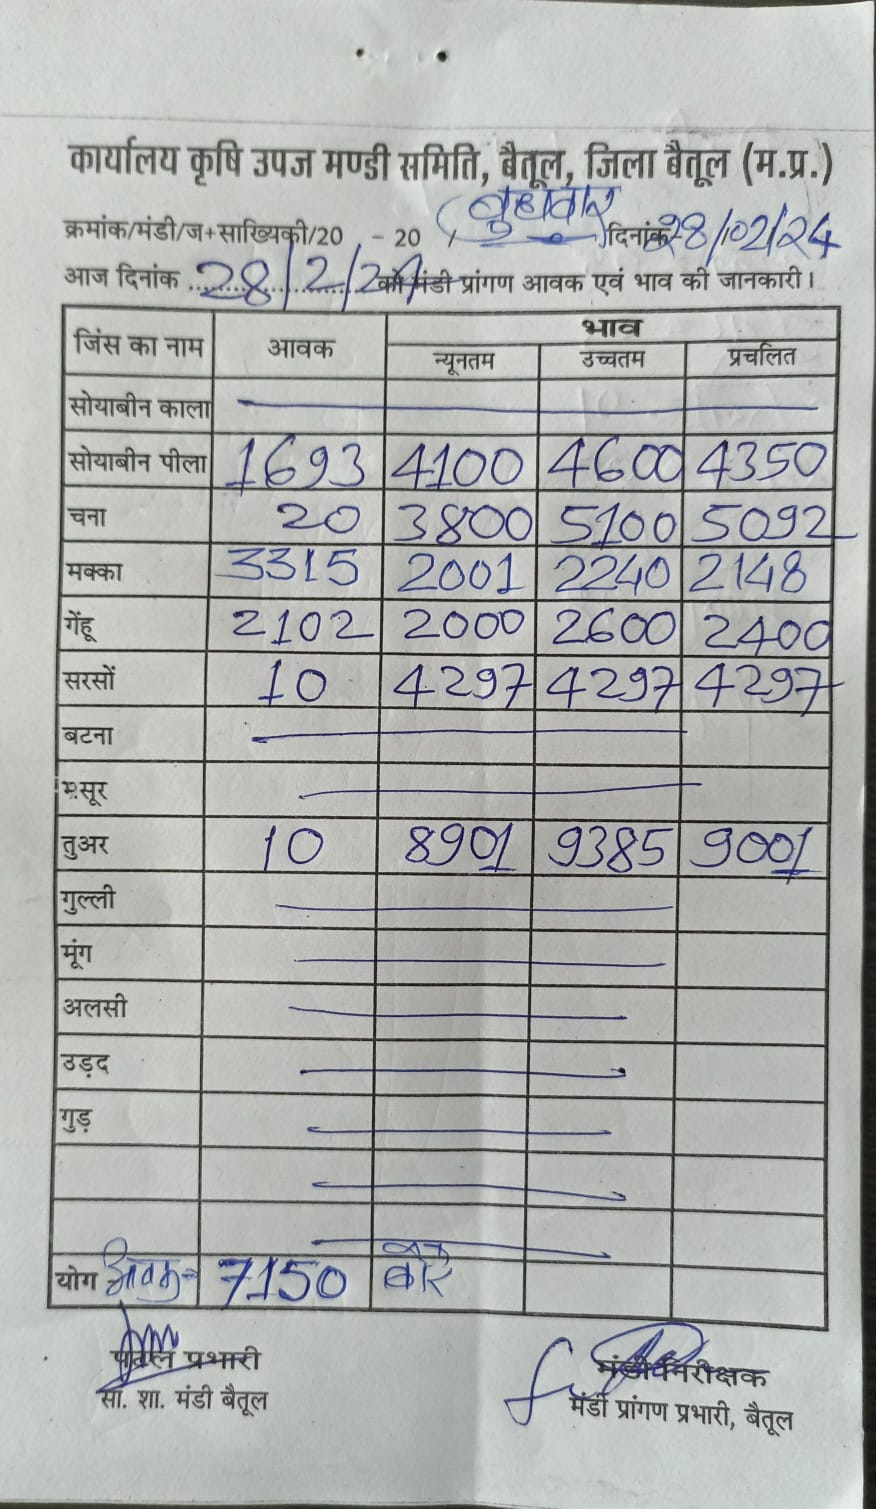 कार्यालय कृषि उपज मण्डी समिति, बैतूल, जिला बैतूल (म.प्र.)
क्रमांक/मंडी/ज+साख्यिकी/20 - 20 / (बुधवार) दिनांक 28/02/24
आज दिनांक 28/2/24 को मंडी प्रांगण आवक एवं भाव की जानकारी।
जिंस का नाम आवक भाव
न्यूनतम उच्चतम प्रचलित
सोयाबीन काला
सोयाबीन पीला 1693 4100 4600 4350
चना 20 3800 5100 5092
मक्का 3315 2001 2240 2148
गेंहू 2102 2000 2600 2400
सरसों 10 4297 4297 4297
बटना
मसूर
तुअर 10 8901 9385 9001
गुल्ली
मूंग
अलसी
उड़द
गुड़
योग आवक = 7150 बोरे
प्रभारी
सा. शा. मंडी बैतूल
मंडी निरीक्षक
मंडी प्रांगण प्रभारी, बैतूल